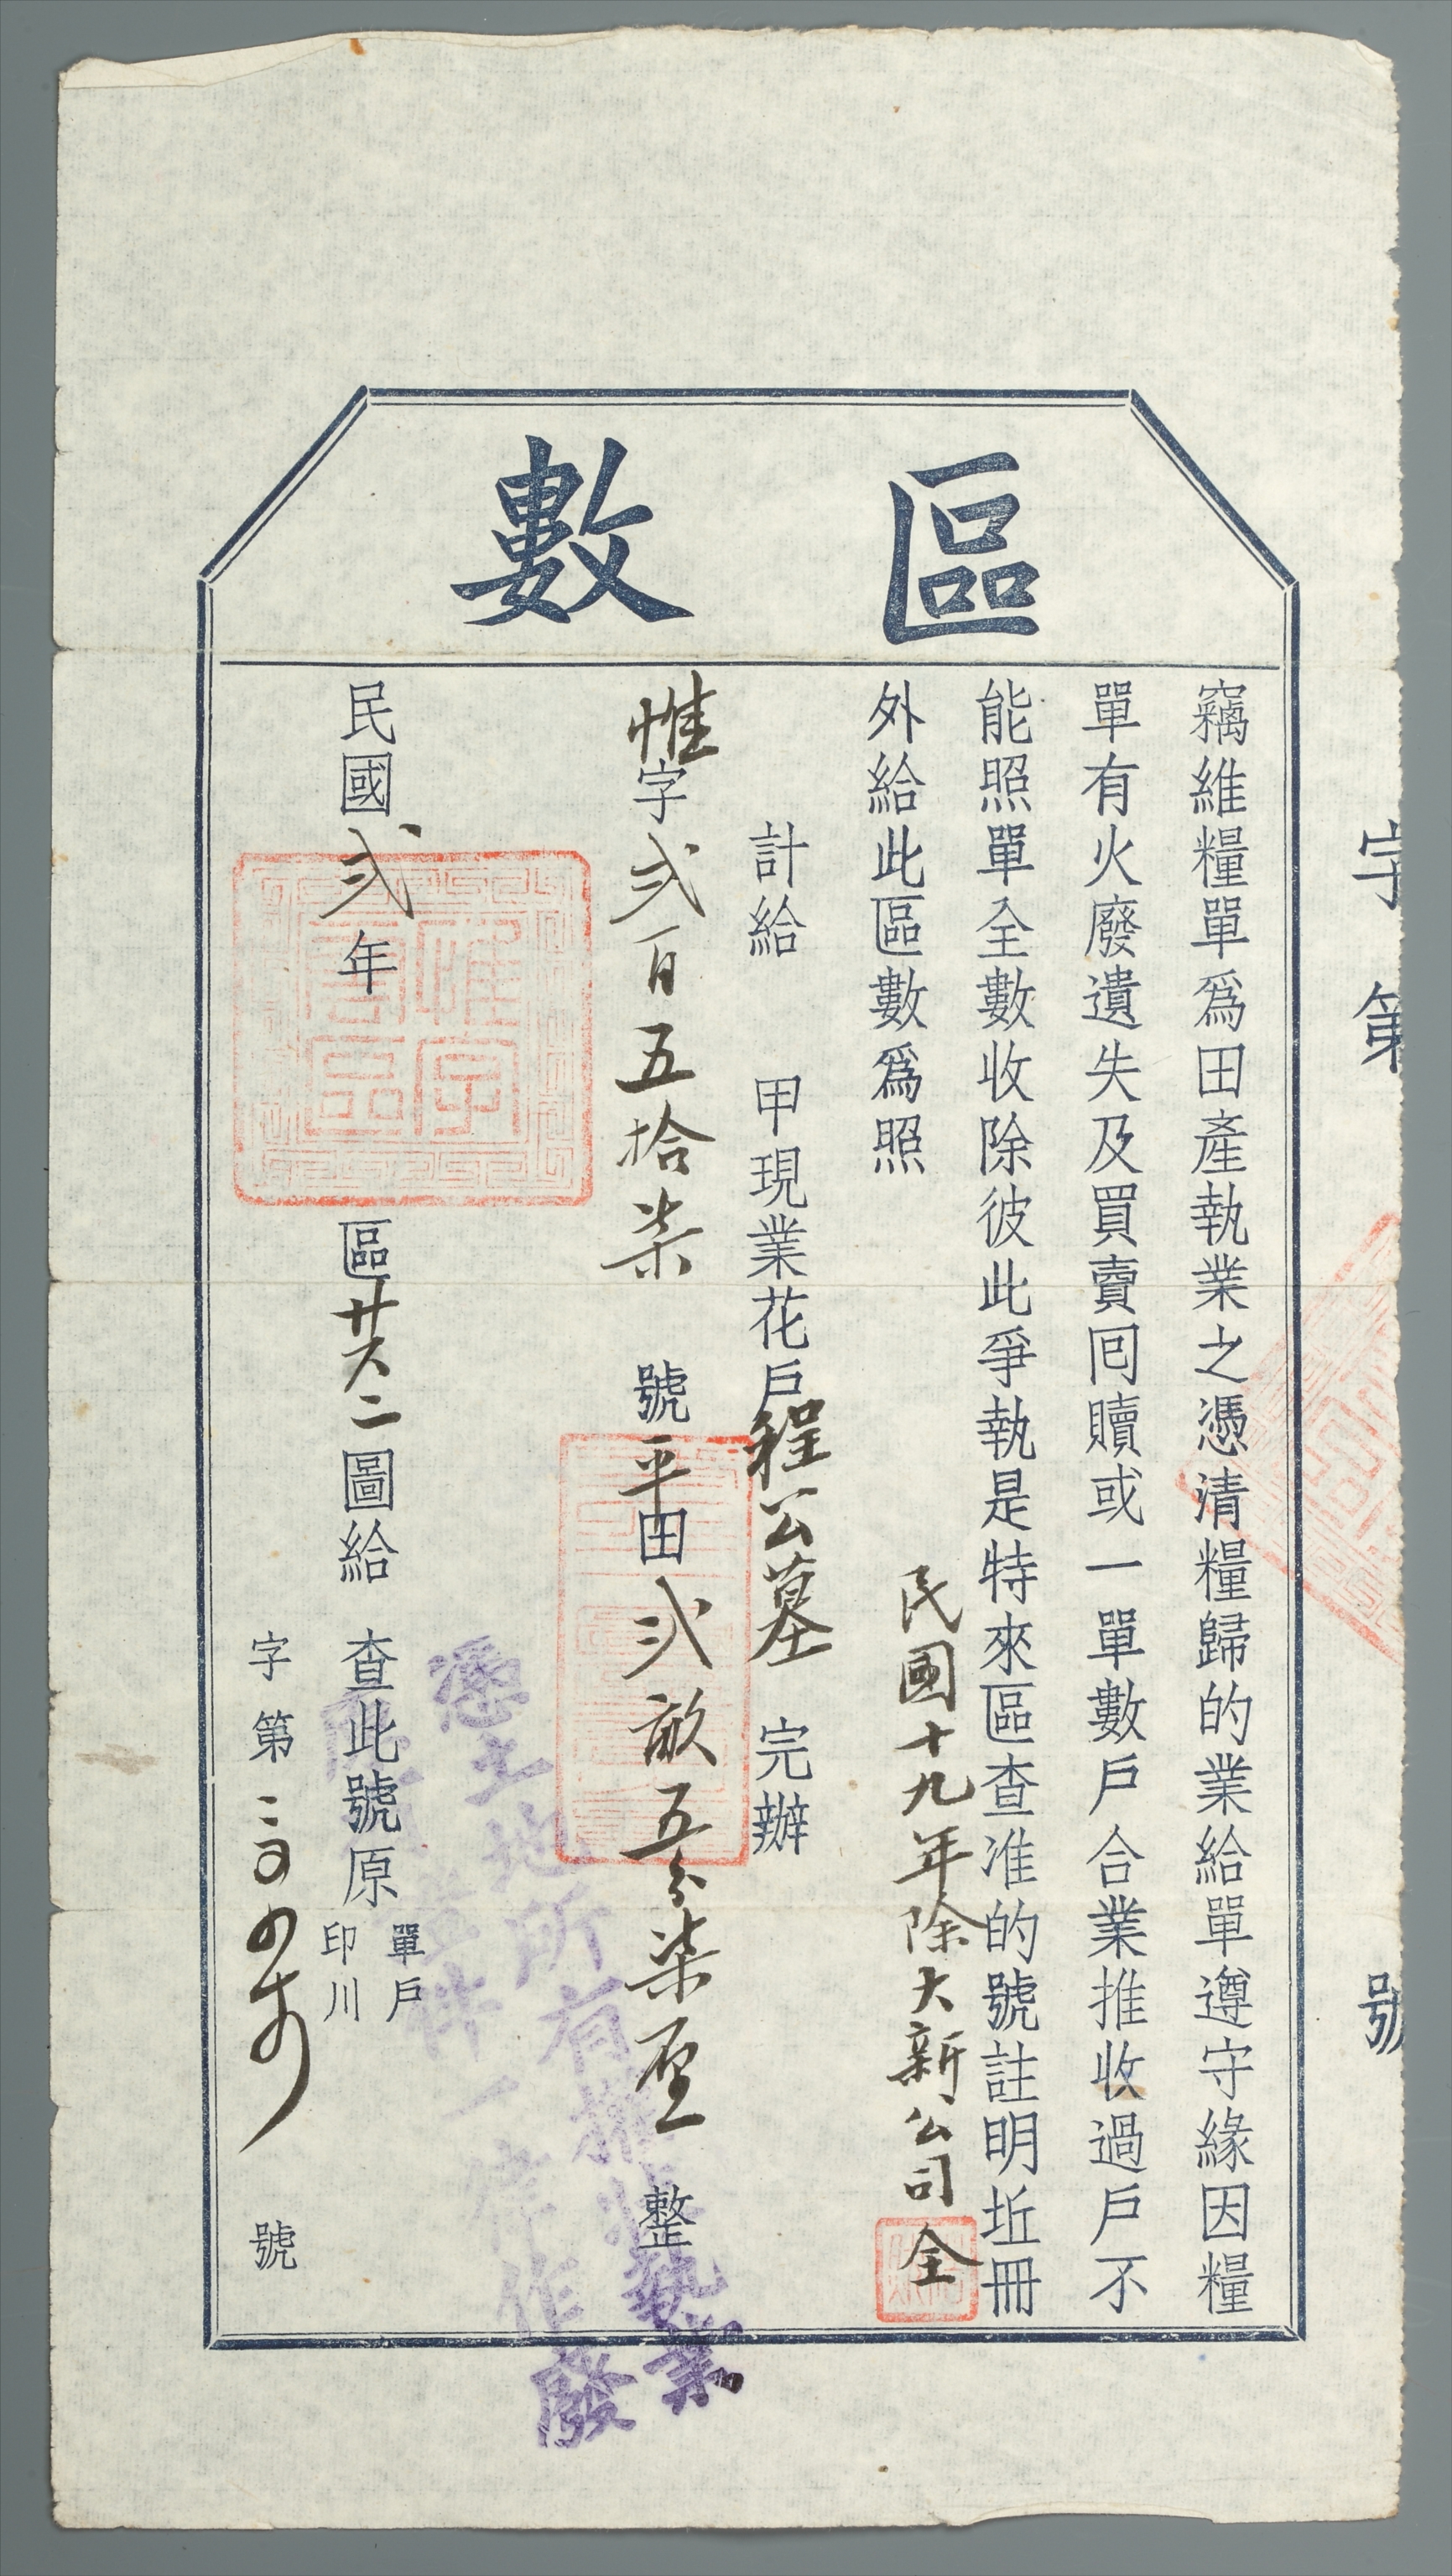 字第　號
區數
竊維糧單爲田產執業之憑清糧歸的業給單遵守緣因糧
單有火廢遺失及買賣囘贖或一單數戶合業推收過戶不
能照單全數收除彼此爭執是特來區查准的號註明坵冊
外給此區數爲照
民國十九年除大新公司全
計給　甲現業花戶程公墓　完辦
惟字弍百五拾柒　號平田弍畝五分柒厘　整
憑土地所有權狀執業
一律作廢
民國弍年　區廿六二圖給　查此號原單戶印川
字第　號